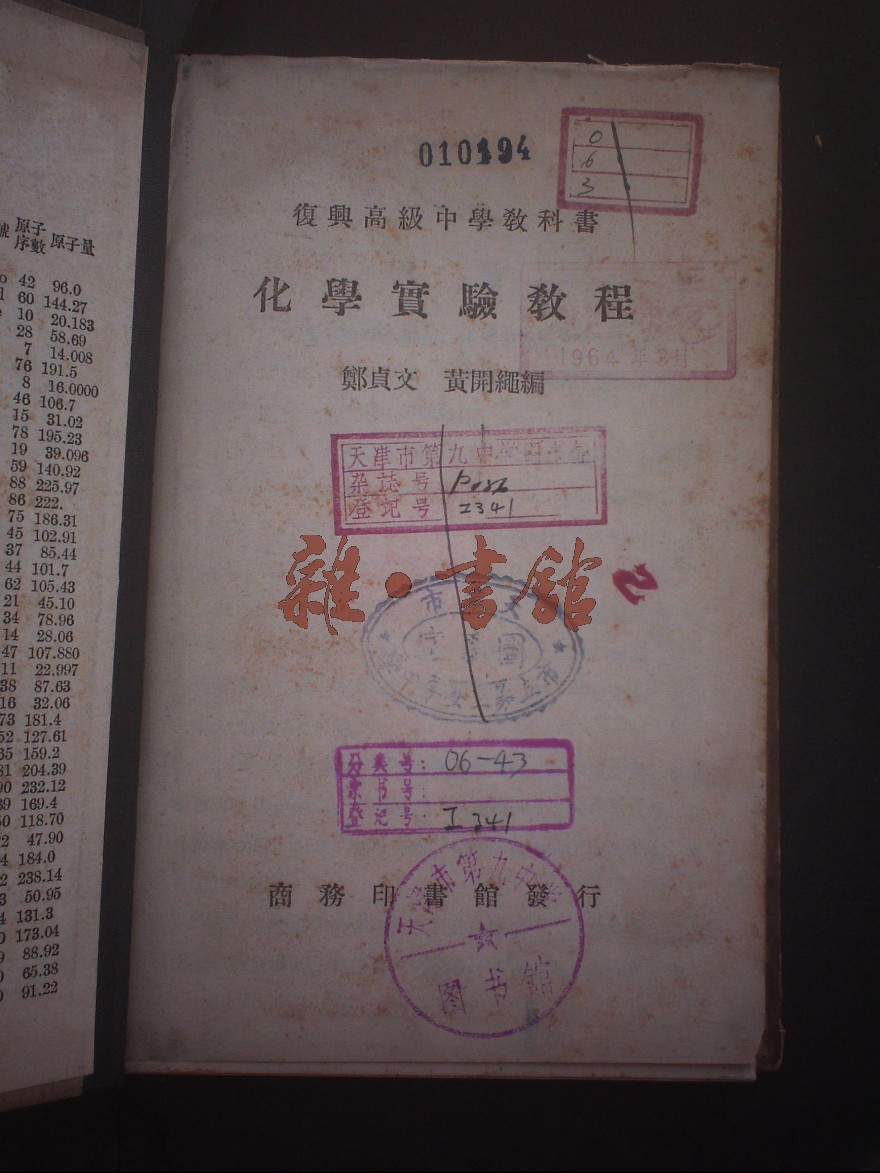 號 原子序數 原子量
42 96.0
60 144.27
10 20.183
28 58.69
7 14.008
76 191.5
8 16.0000
46 106.7
15 31.02
78 195.23
19 39.096
59 140.92
88 225.97
86 222.
75 186.31
45 102.91
37 85.44
44 101.7
62 105.43
21 45.10
34 78.96
14 28.06
47 107.880
11 22.997
38 87.63
16 32.06
73 181.4
52 127.61
65 159.2
81 204.39
90 232.12
69 169.4
50 118.70
22 47.90
184.0
238.14
50.95
131.3
173.04
88.92
65.38
91.22
010194
0
6
3
復興高級中學教科書
化學實驗教程
1964年3月
鄭貞文 黃開繩編
天津市第九中学图书馆
杂誌号
登记号 I341
雜·書館
分类号: 06-43
索书号:
登记号: I341
商務印書館發行
天津市第九中学
图书馆